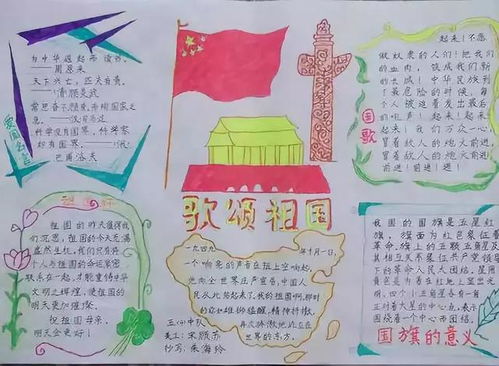 为中华崛起而读书。
——周恩来
天下兴亡，匹夫有责。
——清顾炎武
常思奋不顾身，而殉国家之急。
科学没有国界，科学家却有国界。
——巴甫洛夫
爱国名言
起来！不愿
做奴隶的人们！把我们
的血肉，筑成我们新
的长城！中华民族到
了最危险的时候，每
个人被迫着发出最后
的吼声！起来！起
来！起来！我们万众一心
冒着敌人的炮火前进，
冒着敌人的炮火前进！
前进！前进！进！
国歌
歌颂祖国
祖国的昨天值得我
们沉思，祖国的今天充满
盎然生机，我们只有将
个人与祖国的命运紧密
联系在一起，才能重铸中华
文明之辉煌，使祖国的
明天更加璀璨。
祝祖国母亲，
明天会更好！
一九四九
年十月一日，
一个响亮的声音在
他向全世界庄严宣告，中国人
民从此站起来了。我的祖国啊，那时
精神抖擞，
的东方。
五(2)中队
美工：宋颜苏
抄写：朱海玲
我国的国旗是五星红
旗，旗面为红色象征着
革命，旗上的五颗五角星及
其相互关系象征共产党领导
下的革命人民大团结，星用
黄色是为着在红地上显出光
明，四个小五角星各有一
尖对着大星的中心点，表示
围绕着一个中心而团结。
国旗的意义